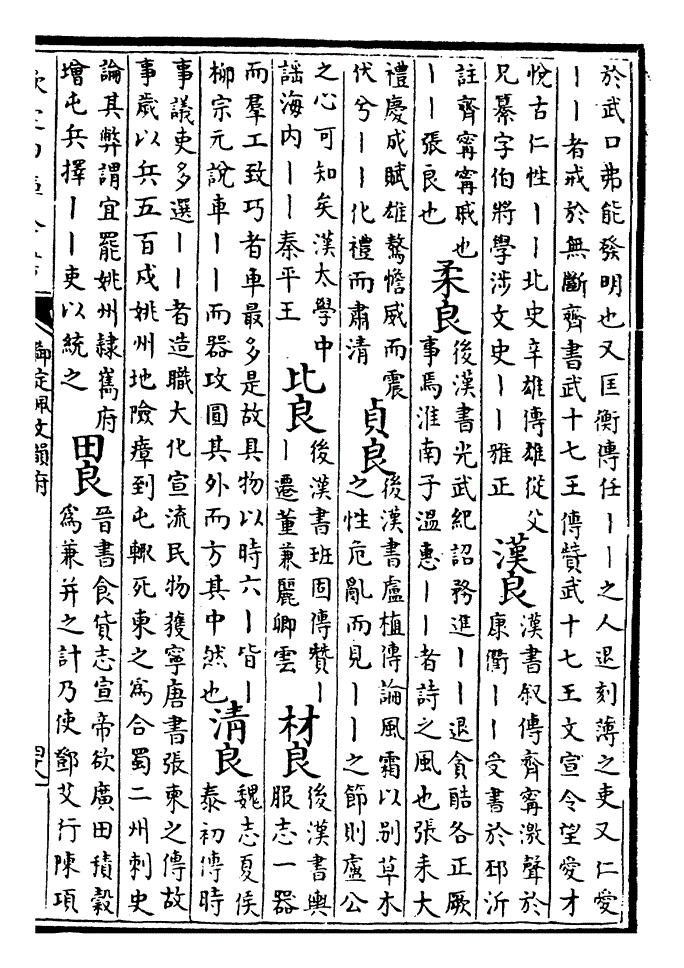 於武口弗能發明也又匡衡傳任丨丨之人退刻薄之吏又仁愛
丨丨者戒於無斷齊書武十七王傳贊武十七王文宣令望愛才
悅古仁性丨丨北史辛雄傳雄從父
兄纂字伯將學涉文史丨丨雅正
漢良
漢書叙傳齊甯激聲於
康衢丨丨受書於邳沂
註齊甯甯戚也
丨丨張良也
柔良
後漢書光武紀詔務進丨丨退貪酷各正厥
事焉淮南子溫惠丨丨者詩之風也張耒大
禮慶成賦雄驁憺威而震
伏兮丨丨化禮而肅清
貞良
後漢書盧植傳論風霜以别草木
之性危亂而見丨丨之節則盧公
之心可知矣漢太學中
謡海内丨丨秦平王
比良
後漢書班固傳贊丨
丨遷董兼麗卿雲
材良
後漢書輿
服志一器
而羣工致巧者車最多是故具物以時六丨皆丨
柳宗元說車丨丨而器攻圓其外而方其中然也
清良
魏志夏侯
泰初傳時
事議吏多選丨丨者造職大化宣流民物獲寧唐書張柬之傳故
事歲以兵五百戍姚州地險瘴到屯輒死柬之爲合蜀二州刺史
論其弊謂宜罷姚州隸巂府
增屯兵擇丨丨吏以統之
田良
晉書食貨志宣帝欲廣田積穀
爲兼并之計乃使鄧艾行陳項
欽定四庫全書
御定佩文韻府